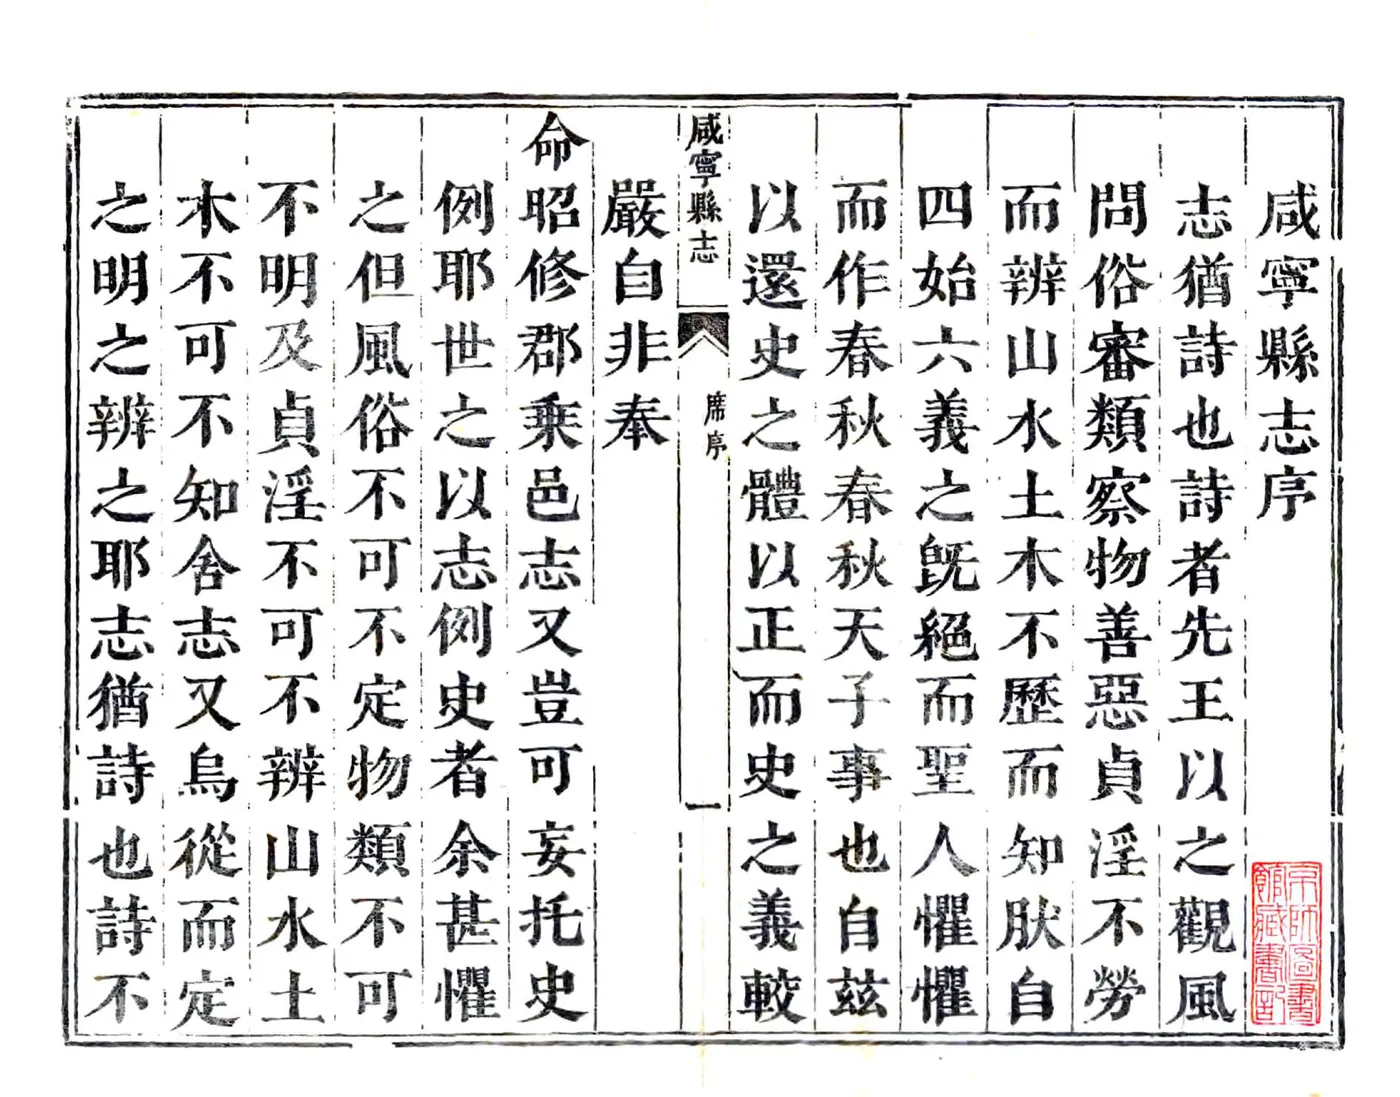 咸寧縣志序
志猶詩也詩者先王以之觀風
問俗審類察物善惡貞淫不勞
而辨山水土木不歷而知肰自
四始六義之旣絕而聖人懼懼
而作春秋春秋天子事也自茲
以還史之體以正而史之義較
咸寧縣志
席序
一
嚴自非奉
命昭修郡乗邑志又豈可妄托史
例耶世之以志例史者余甚懼
之但風俗不可不定物類不可
不明及貞淫不可不辨山水土
木不可不知舎志又烏從而定
之明之辨之耶志猶詩也詩不
京師圖書
館藏書記